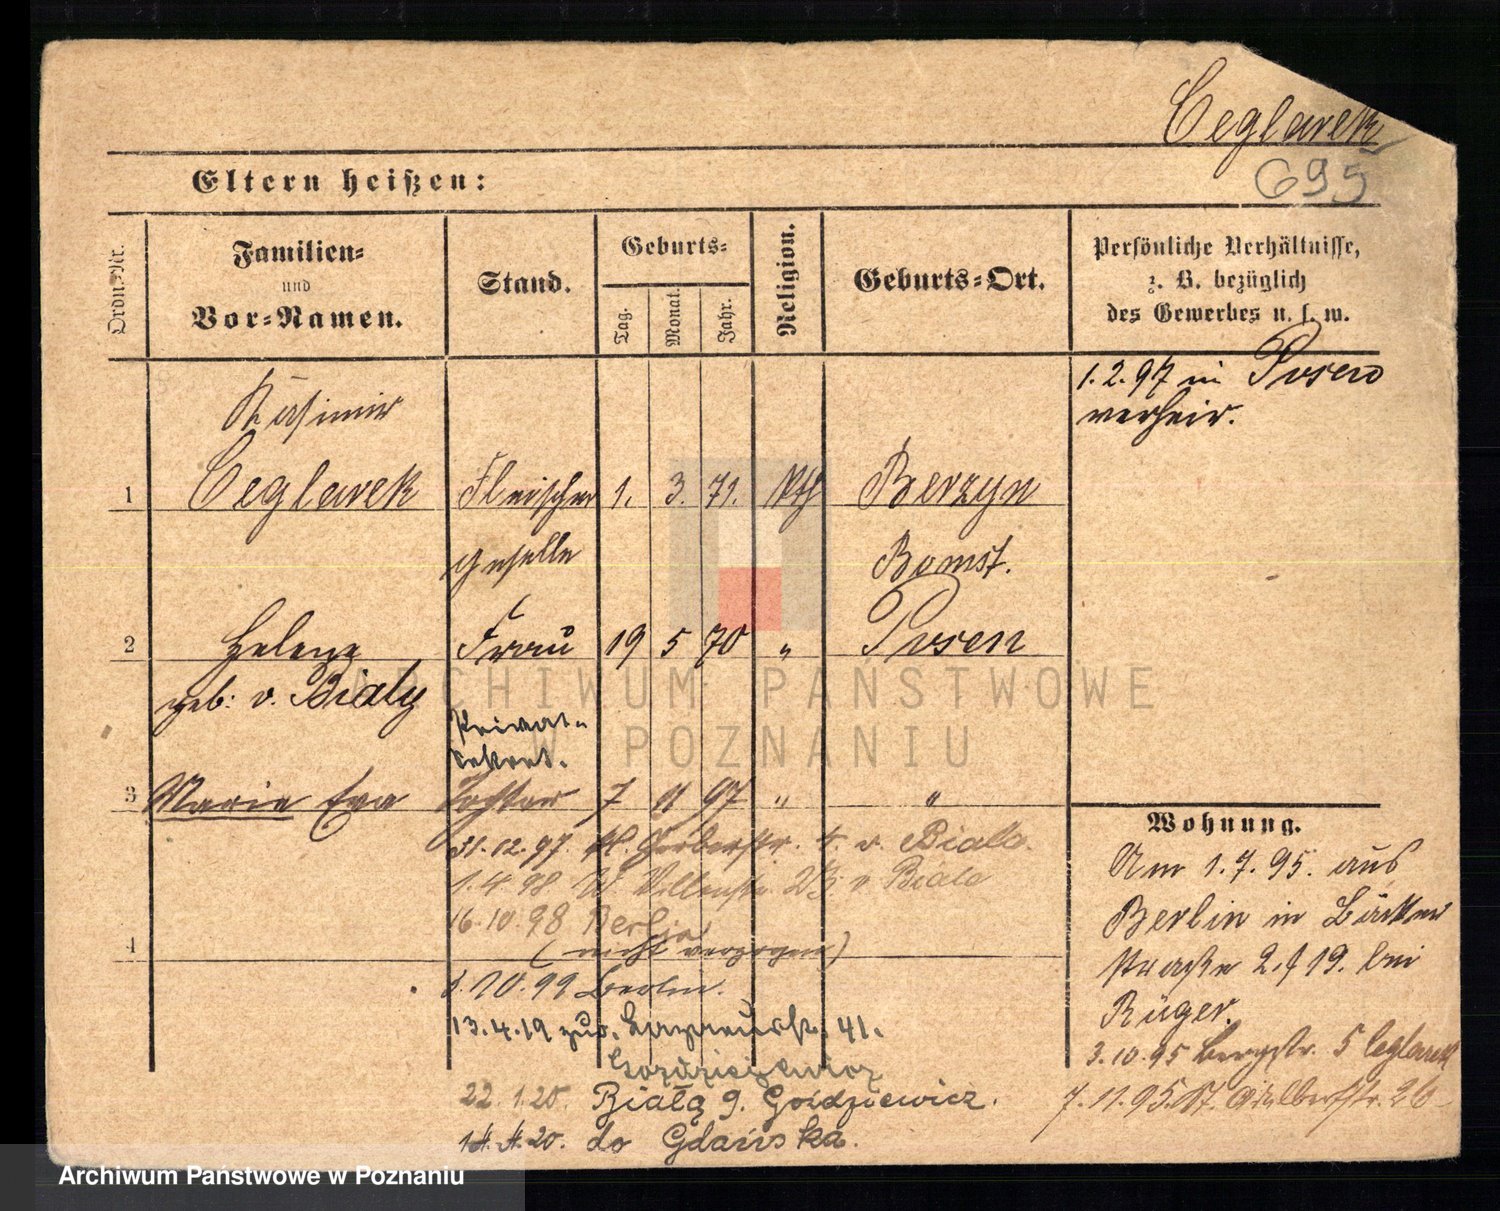 Ceglarek
695
Eltern heißen:
Ordn.-Nr.
Familien-
und
Vor-Namen.
Stand.
Geburts-
Tag.
Monat.
Jahr.
Religion.
Geburts-Ort.
Persönliche Verhältnisse,
z. B. bezüglich
des Gewerbes u. s. w.
1.2.97 in Posen
verheir.
Kasimir
1 Ceglarek Fleischer 1. 3. 71. kth Berzyn
geselle Bomst.
2 Helene Frau 19 5 70 " Posen
geb: v. Bialy
Privat-
sekret.
3 Marie Eva Tochter 7 11 97 " "
31.12.97. Kl. Gerberstr. 4. v. Biala.
1.4.98 W. 23 v Biala
16.10.98 Berlin
4 (nicht verzogen)
10.99 Berlin.
13.4.19 zur. 41.
Gozdziewicz
22.1.20. Białą g. Goździewicz.
14.4.20. do Gdańska.
Wohnung.
Am 1.7.95. aus
Berlin in Bäcker
straße 2. f 19. bei
Rüger.
3.10.95 Bergstr. 5 Ceglarek
7.11.95. St. Adalbertstr. 26
ARCHIWUM PAŃSTWOWE
W POZNANIU
Archiwum Państwowe w Poznaniu